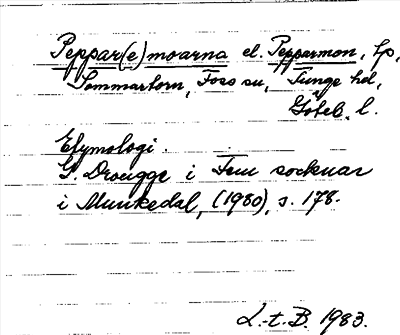 Peppar(e)moarna el. Pepparmon, tp,
Sommartorn, Foss sn, Tunge hd,
Göteb. l.
Etymologi.
G. Drougge i Fem socknar
i Munkedal, (1980), s. 178.
L.-t. B. 1983.